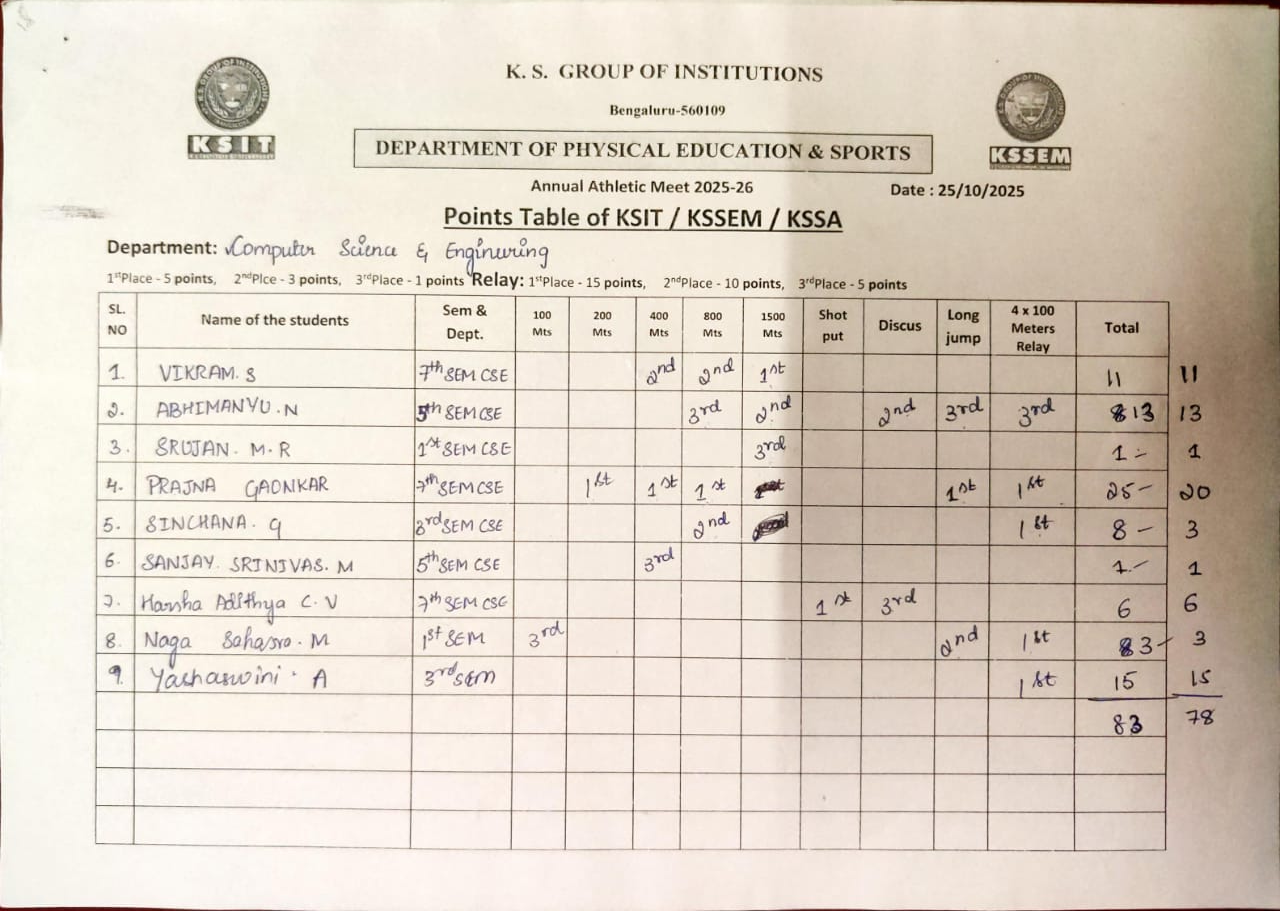 K. S. GROUP OF INSTITUTIONS
Bengaluru-560109
KSIT
KSSEM
DEPARTMENT OF PHYSICAL EDUCATION & SPORTS
Annual Athletic Meet 2025-26 Date : 25/10/2025
Points Table of KSIT / KSSEM / KSSA
Department: Computer Science & Engineering
1stPlace - 5 points, 2ndPlce - 3 points, 3rdPlace - 1 points Relay: 1stPlace - 15 points, 2ndPlace - 10 points, 3rdPlace - 5 points
SL. NO Name of the students Sem & Dept. 100 Mts 200 Mts 400 Mts 800 Mts 1500 Mts Shot put Discus Long jump 4 x 100 Meters Relay Total
1. VIKRAM. S 7th SEM CSE 2nd 2nd 1st 11 11
2. ABHIMANYU. N 5th SEM CSE 3rd 2nd 2nd 3rd 3rd 13 13
3. SRUJAN. M. R 1st SEM CSE 3rd 1 - 1
4. PRAJNA GAONKAR 7th SEM CSE 1st 1st 1st 1st 1st 25 - 20
5. SINCHANA. G 3rd SEM CSE 2nd 1st 8 - 3
6. SANJAY SRINIVAS. M 5th SEM CSE 3rd 1 - 1
7. Harsha Adithya C. V 7th SEM CSE 1st 3rd 6 6
8. Naga Sahasra. M 1st SEM 3rd 2nd 1st 83 - 3
9. Yashaswini. A 3rd SEM 1st 15 15
83 78